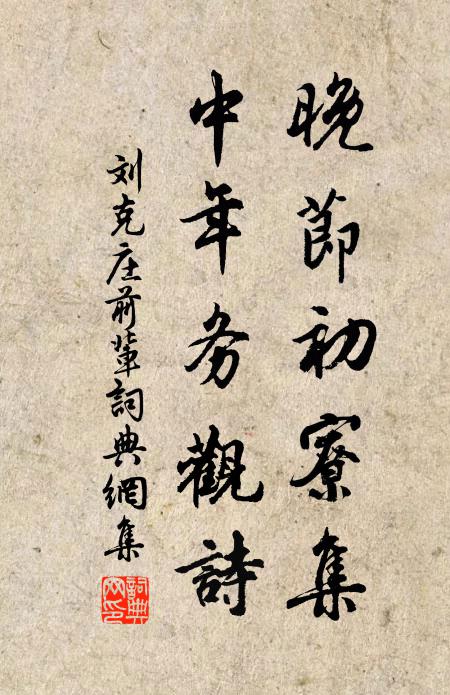 晚節初寮集
中年务觀詩
刘克庄前輩詞典網集
詞典網印